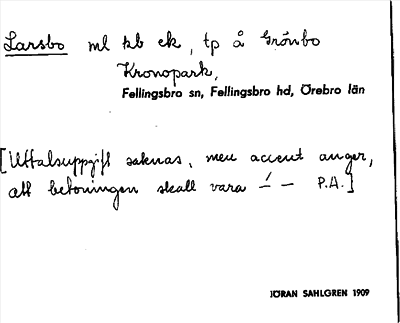 Larsbo ml kb ek, tp å Grönbo
Kronopark,
Fellingsbro sn, Fellingsbro hd, Örebro län
[Uttalsuppgift saknas, men accent anger,
att betoningen skall vara –́ – P.A.]
JÖRAN SAHLGREN 1909